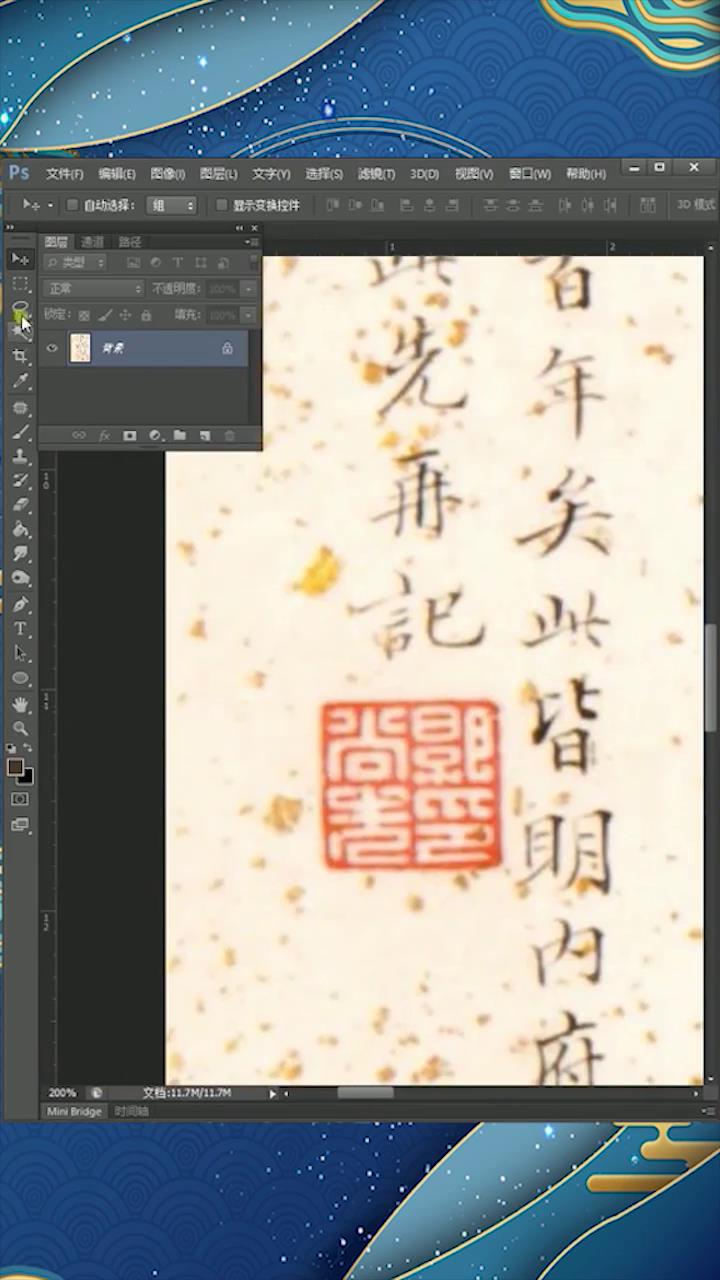 Ps 文件(F) 编辑(E) 图像(I) 图层(L) 文字(Y) 选择(S) 滤镜(T) 3D(D) 视图(V) 窗口(W) 帮助(H)
自动选择: 组 显示变换控件 3D 模式
图层 通道 路径
类型
正常 不透明度: 100%
锁定: 填充: 100%
背景
1 2
10
11
12
百年矣此皆明内府
此先再記
200% 文档:11.7M/11.7M
Mini Bridge 时间轴